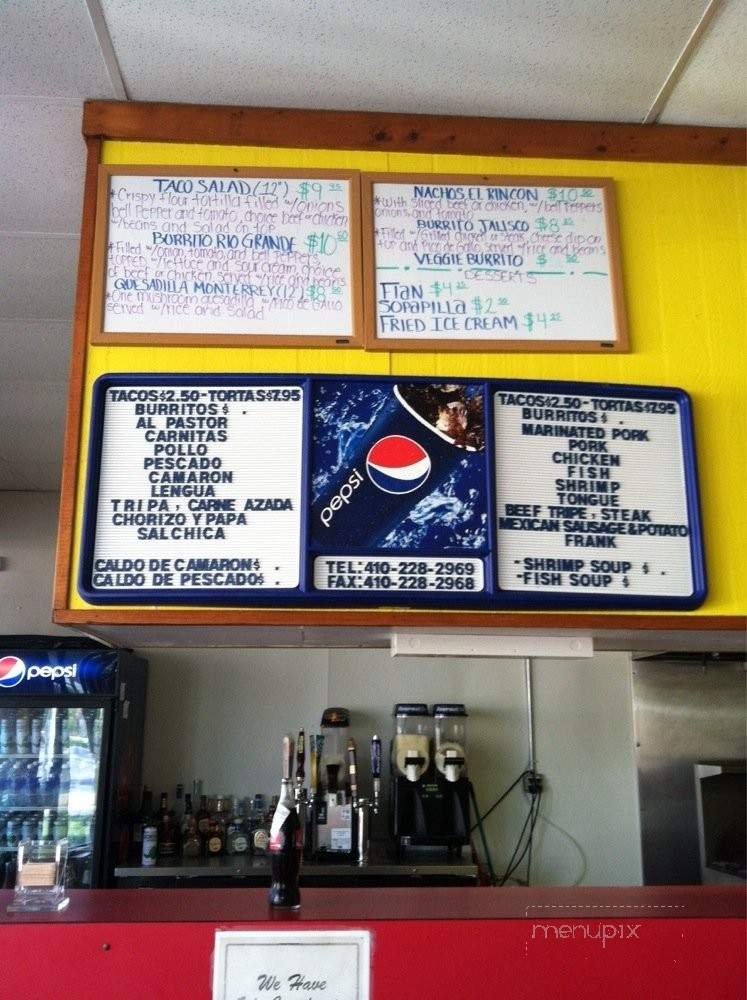 TACO SALAD (12") $9.95
*Crispy flour tortilla filled w/onions
bell Pepper and tomato, choice beef or chicken
w/beans and Salad on top
BORRITO RIO GRANDE $10.50
*Filled w/onion, tomato, and bell Peppers,
topped w/lettuce and sour cream, choice
of beef or chicken, served w/rice and beans
QUESADILLA MONTERREY (12)
*One mushroom quesadilla w/PICO DE GALLO
served w/rice and salad
NACHOS EL RINCON $10
*With sliced beef or chicken, w/bell Peppers
onions and tomato
BURRITO JALISCO $8
*Filled w/Grilled chicken or steak, cheese dip on
top and Pico de Gallo, served w/rice and beans
VEGGIE BURRITO $
DESSERTS
Flan $4
SOPAPILLA $2
FRIED ICE CREAM $4
TACOS$2.50-TORTAS$7.95
BURRITOS $ .
AL PASTOR
CARNITAS
POLLO
PESCADO
CAMARON
LENGUA
TRIPA, CARNE AZADA
CHORIZO Y PAPA
SALCHICA
CALDO DE CAMARON$ .
CALDO DE PESCADO$ .
pepsi
TEL:410-228-2969
FAX:410-228-2968
TACOS$2.50-TORTAS$7.95
BURRITOS $ .
MARINATED PORK
PORK
CHICKEN
FISH
SHRIMP
TONGUE
BEEF TRIPE, STEAK
MEXICAN SAUSAGE & POTATO
FRANK
-SHRIMP SOUP $ .
-FISH SOUP $
pepsi
menupix
We Have